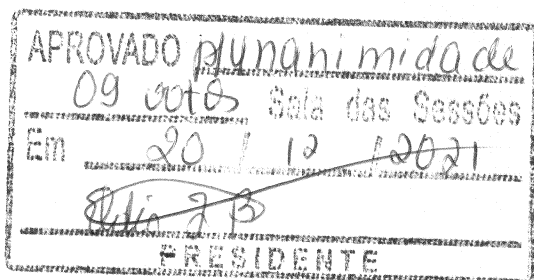 APROVADO p/unanimidade
09 votos Sala das Sessões
Em 20 / 12 / 2021
PRESIDENTE